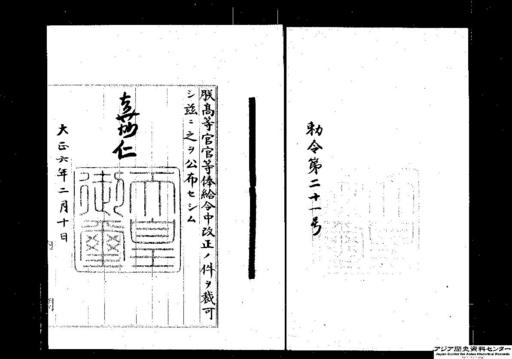 勅令第二十一号
朕高等官官等俸給令中改正ノ件ヲ裁可
シ茲ニ之ヲ公布セシム
嘉仁
天皇
御璽
大正六年二月十日
アジア歴史資料センター
Japan Center for Asian Historical Records